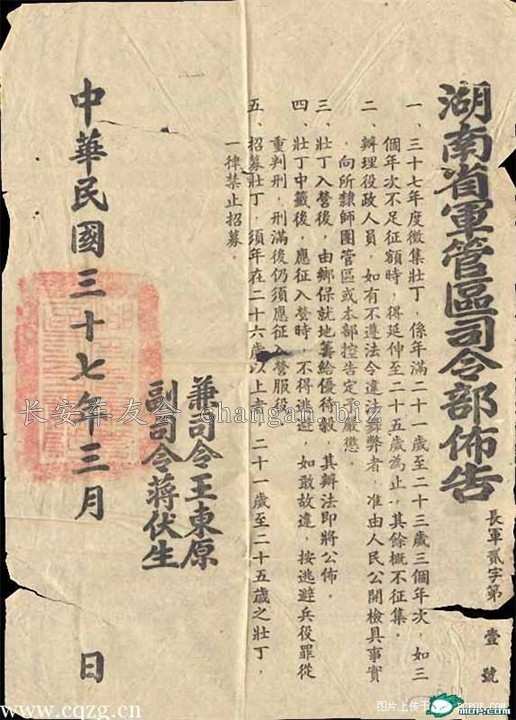 湖南省軍管區司令部佈告
長軍貳字第壹號
一、三十七年度徵集壯丁，係年滿二十一歲至二十三歲三個年次，如三
個年次不足征額時，得延伸至二十五歲為止，其餘概不征集。
二、辦理役政人員，如有不遵法令違法舞弊者，准由人民公開檢具事實
，向所隸師團管區或本部控告定予嚴懲。
三、壯丁入營後，由鄉保就地籌給優待穀，其辦法即將公佈。
四、壯丁中籤後，應征入營時，不得逃避，如敢故違，按逃避兵役罪從
重判刑，刑滿後仍須應征入營服役。
五、招募壯丁，須年在二十六歲以上者，二十一歲至二十五歲之壯丁，
一律禁止招募。
兼司令王東原
副司令蔣伏生
中華民國三十七年三月 日
长安车友会 changan.biz
www.cqzg.cn
图片上传于